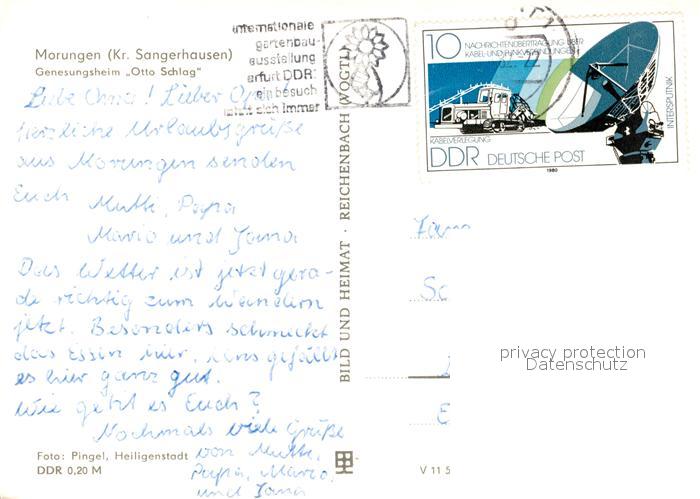 internationale
gartenbau-
ausstellung
erfurt DDR:
ein besuch
lohnt sich immer
10 NACHRICHTENÜBERTRAGUNG ÜBER
KABEL- UND FUNKVERBINDUNGEN
KABELVERLEGUNG
INTERSPUTNIK
DDR DEUTSCHE POST
1980
Morungen (Kr. Sangerhausen)
Genesungsheim „Otto Schlag"
Liebe Oma! Lieber Opa!
Herzliche Urlaubsgrüße
aus Morungen senden
Euch Mutti, Papa
Mario und Jana
Das Wetter ist jetzt gera-
de richtig zum Wandern
jetzt. Besonders schmeckt
das Essen hier. Uns gefällt
es hier ganz gut.
Wie geht es Euch?
Nochmals viele Grüße
von Mutti,
Papa, Mario,
und Jana
Foto: Pingel, Heiligenstadt
DDR 0,20 M
BILD UND HEIMAT · REICHENBACH (VOGTL)
Fam
Sc
E
V 11 5
privacy protection
Datenschutz